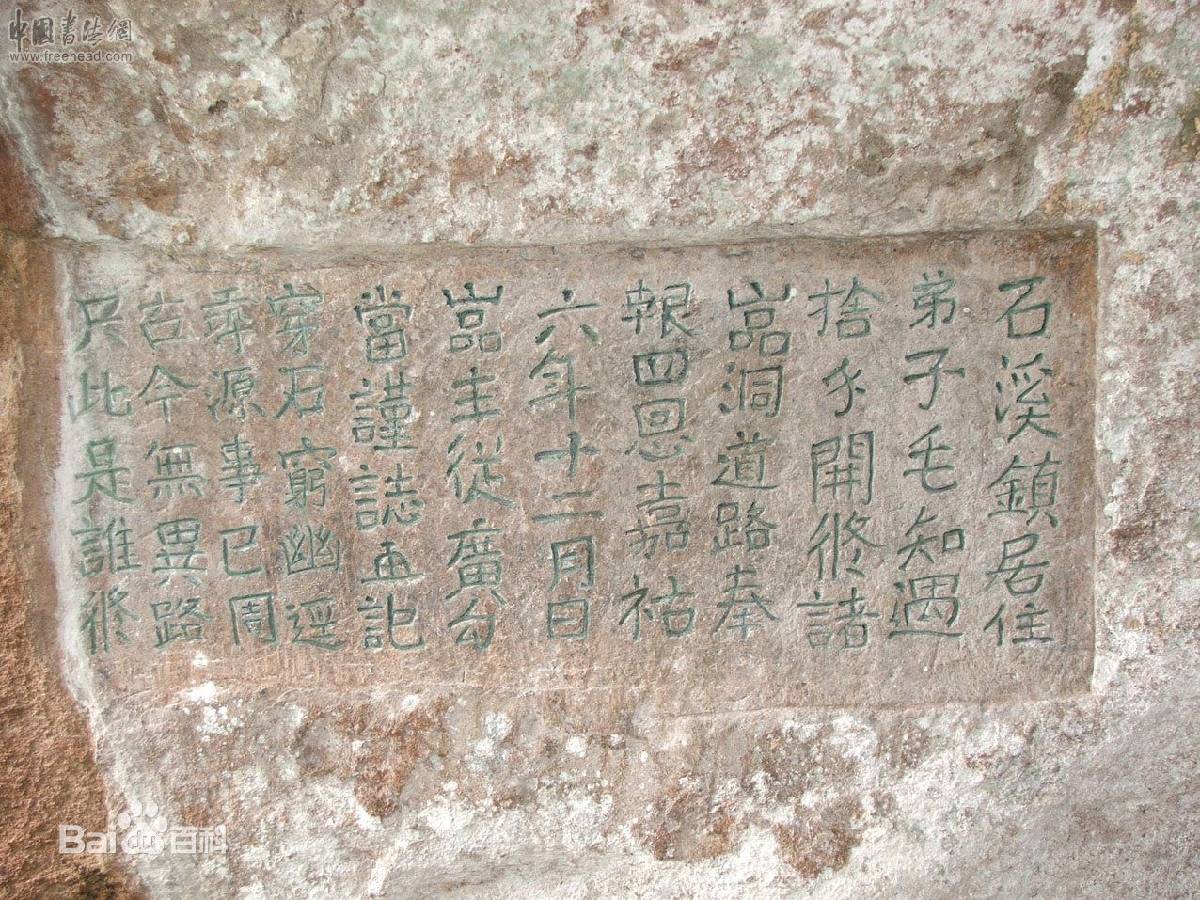 中国书法網
www.freehead.com
石溪鎮居住
弟子毛知遇
捨開修諸
嵓洞道路奉
報四恩嘉祐
六年十二月日
嵓主從廣勾
當謹誌記
穿石窮幽逕
乘源事已周
古今無異路
只此是誰修
Bai百科